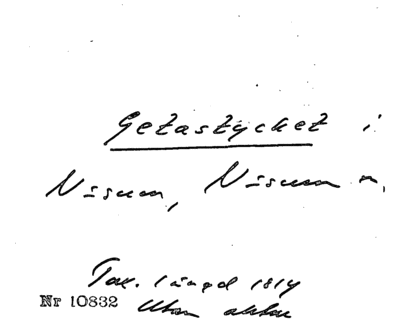 Getastycket i
Näsum, Näsum n,
Tax. längd 1814
Nr 10832 Utan akter